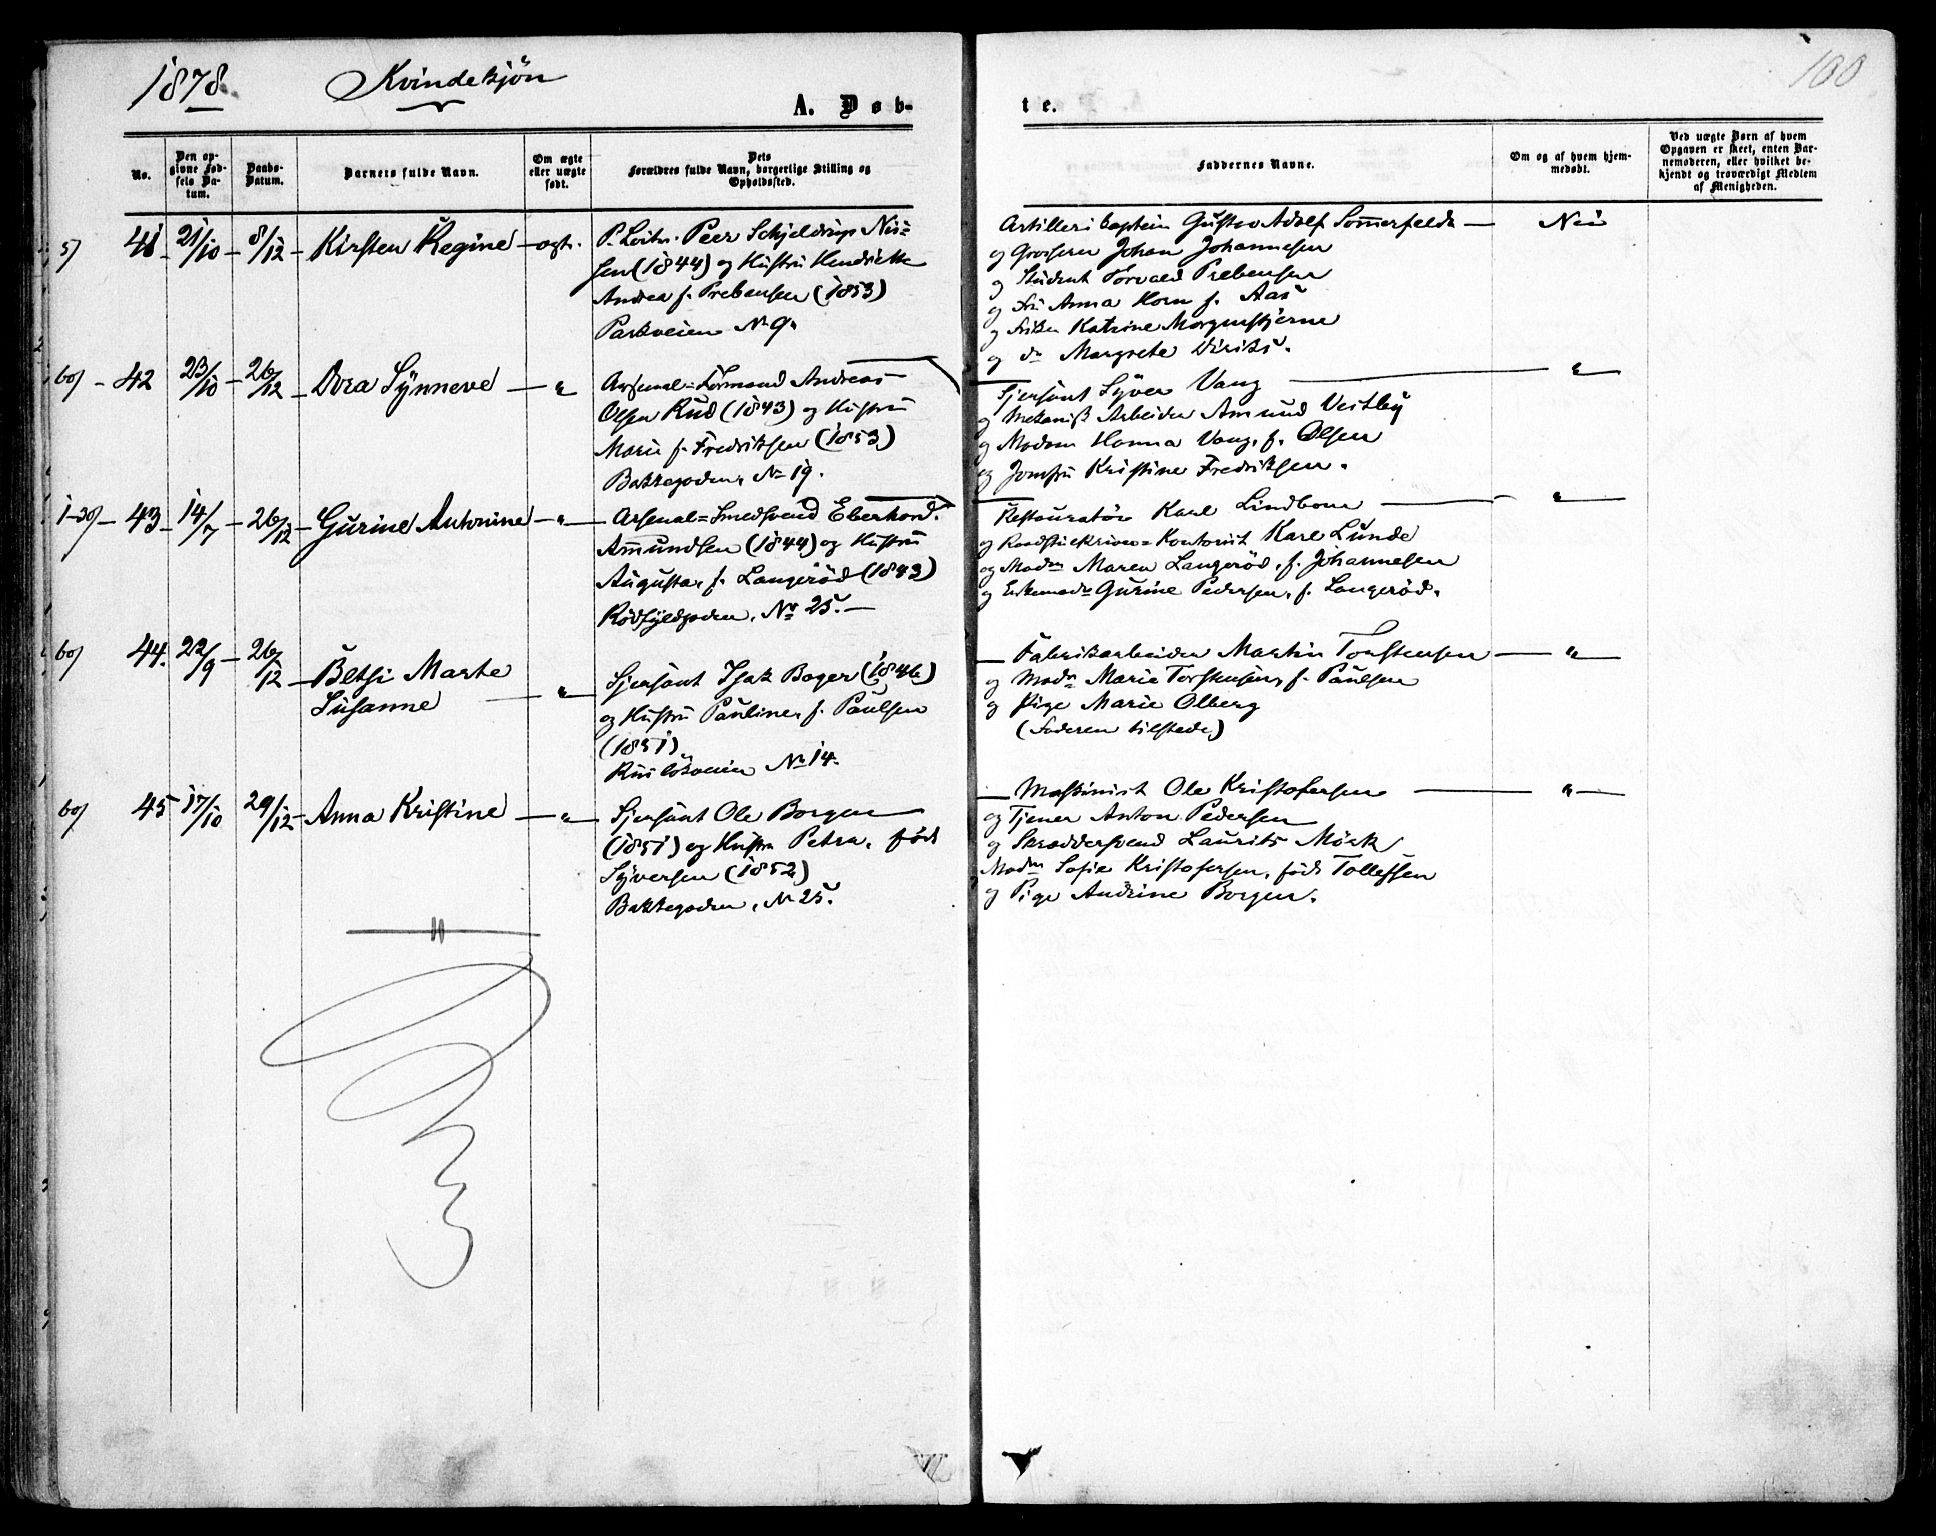 1878. Kvindekjön
100
A. Døb-
te.
No.
Den op-
givne Fød-
sels Da-
tum.
Daabs-
Datum.
Barnets fulde Navn.
Om ægte
eller uægte
født.
Dets
Forældres fulde Navn, borgerlige Stilling og
Opholdssted.
Faddernes Navne.
Om og af hvem hjem-
medøbt.
Ved uægte Børn af hvem
Opgaven er skeet, enten Bar-
nemoderen, eller hvilket be-
kjendt og troværdigt Medlem
af Menigheden.
5) 41 21/10 8/12 Kirsten Regine ægte. Peer Schjeldrup Nis=
sen (1844) og Hustru Hendrikke
Andrea f. Prebensen (1853)
Parkveien No 9.
Artilleri Captein Gustav Adolf Sommerfeldt Nei
og Grosserer Johan Johannesen
og Student Torvald Prebensen
og Fru Anna Horn f. Aas
og Frøken Katrine Morgenstjerne
og do Margrete Diriks.
6) 42 23/10 26/12 Dora Synneve " Arsenal=Formand Andreas
Olsen Rud (1843) og Hustru
Marie f. Fredriksen (1853)
Bakkegaden, No 19.
Sjersant Syver Vang "
og Mekanisk Arbeider Amund Vestby
og Madam Hanna Vang, f. Olsen
og Jomfru Kristine Fredriksen.
43 14/7 26/12 Gurine Antonine " Arsenal=Smedsvend Eberhard
Amundsen (1844) og Hustru
Augusta, f. Langeröd (1843)
Rödfyldgaden, No 25.
Restauratör Karl Lindbom "
og Kontorist Karl Lunde
og Madm Maren Langeröd, f. Johannesen
og Enkemadm Gurine Pedersen, f. Langeröd.
6) 44. 22/9 26/12 Betsi Marte
Susanne " Sjersant Isak Boger (1846)
og Hustru Pauline, f. Paulsen
(1851)
No 14.
Fabrikarbeider Martin Torstensen "
og Madm Marie Torstensen, f. Paulsen
og Pige Marie Olberg
(Faderen tilstede)
6) 45 17/10 29/12 Anna Kristine " Sjersant Ole Borgen
(1851) og Hustru Petra, født
Syversen (1852)
Bakkegaden, No 25.
Maskinist Ole Kristofersen "
og Tjener Anton Pedersen
og Skræddersvend Laurits Mörk
Madm Sofie Kristofersen, født Tollefsen
og Pige Andrine Borgen.